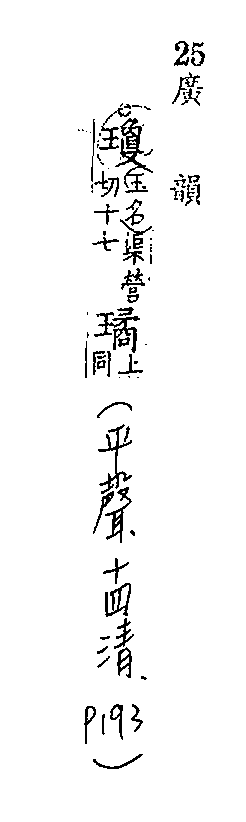 25 廣韻
瓊玉名渠營切十七璚上同(平聲、十四清、P193)